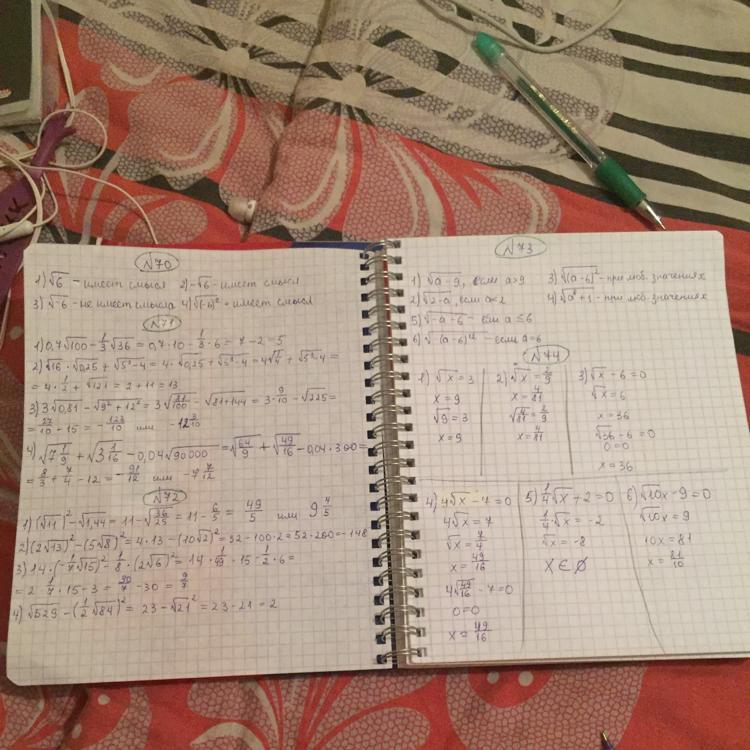 №70
1) √6 - имеет смысл 2) -√6 - имеет смысл
3) √-6 - не имеет смысла 4) √(-6)² - имеет смысл
№71
1) 0,7√100 - 1/3√36 = 0,7·10 - 1/3·6 = 7 - 2 = 5
2) √16·√0,25 + √5³-4 = 4·√0,25 + √5³-4 = 4√1/4 + √5³-4 =
= 4·1/2 + √121 = 2 + 11 = 13
3) 3√0,81 - √9²+12² = 3√81/100 - √81+144 = 3·9/10 - √225 =
= 27/10 - 15 = -123/10 или -12 3/10
4) √7 1/9 + √3 1/16 - 0,04√90000 = √64/9 + √49/16 - 0,04·300 =
= 8/3 + 7/4 - 12 = -91/12 или -7 7/12
№72
1) (√11)² - √1,44 = 11 - √36/25 = 11 - 6/5 = 49/5 или 9 4/5
2) (2√13)² - (5√8)² = 4·13 - (10√2)² = 52 - 100·2 = 52 - 200 = -148
3) 14·(-1/7√15)² - 1/8·(2√6)² = 14·1/49·15 - 1/2·6 =
= 2·1/7·15 - 3 = 30/7 - 30 = 9/7
4) √529 - (1/2√84)² = 23 - √21² = 23 - 21 = 2
№73
1) √a-9, если a>9 3) √(a-6)² - при люб. значениях
2) √2-a, если a<2 4) √a²+1 - при люб. значениях
5) √-a-6 - если a ≤ 6
6) √-(a-6)⁴ - если a=6
№74
1) √x = 3 2) √x = 2/9 3) √x - 6 = 0
x = 9 x = 4/81 √x = 6
√9 = 3 √4/81 = 2/9 x = 36
x = 9 x = 4/81 √36 - 6 = 0
0 = 0
x = 36
4) 4√x - 7 = 0 5) 1/4√x + 2 = 0 6) √10x - 9 = 0
4√x = 7 1/4·√x = -2 √10x = 9
√x = 7/4 √x = -8 10x = 81
x = 49/16 x ∈ ∅ x = 81/10
4√49/16 - 7 = 0
0 = 0
x = 49/16